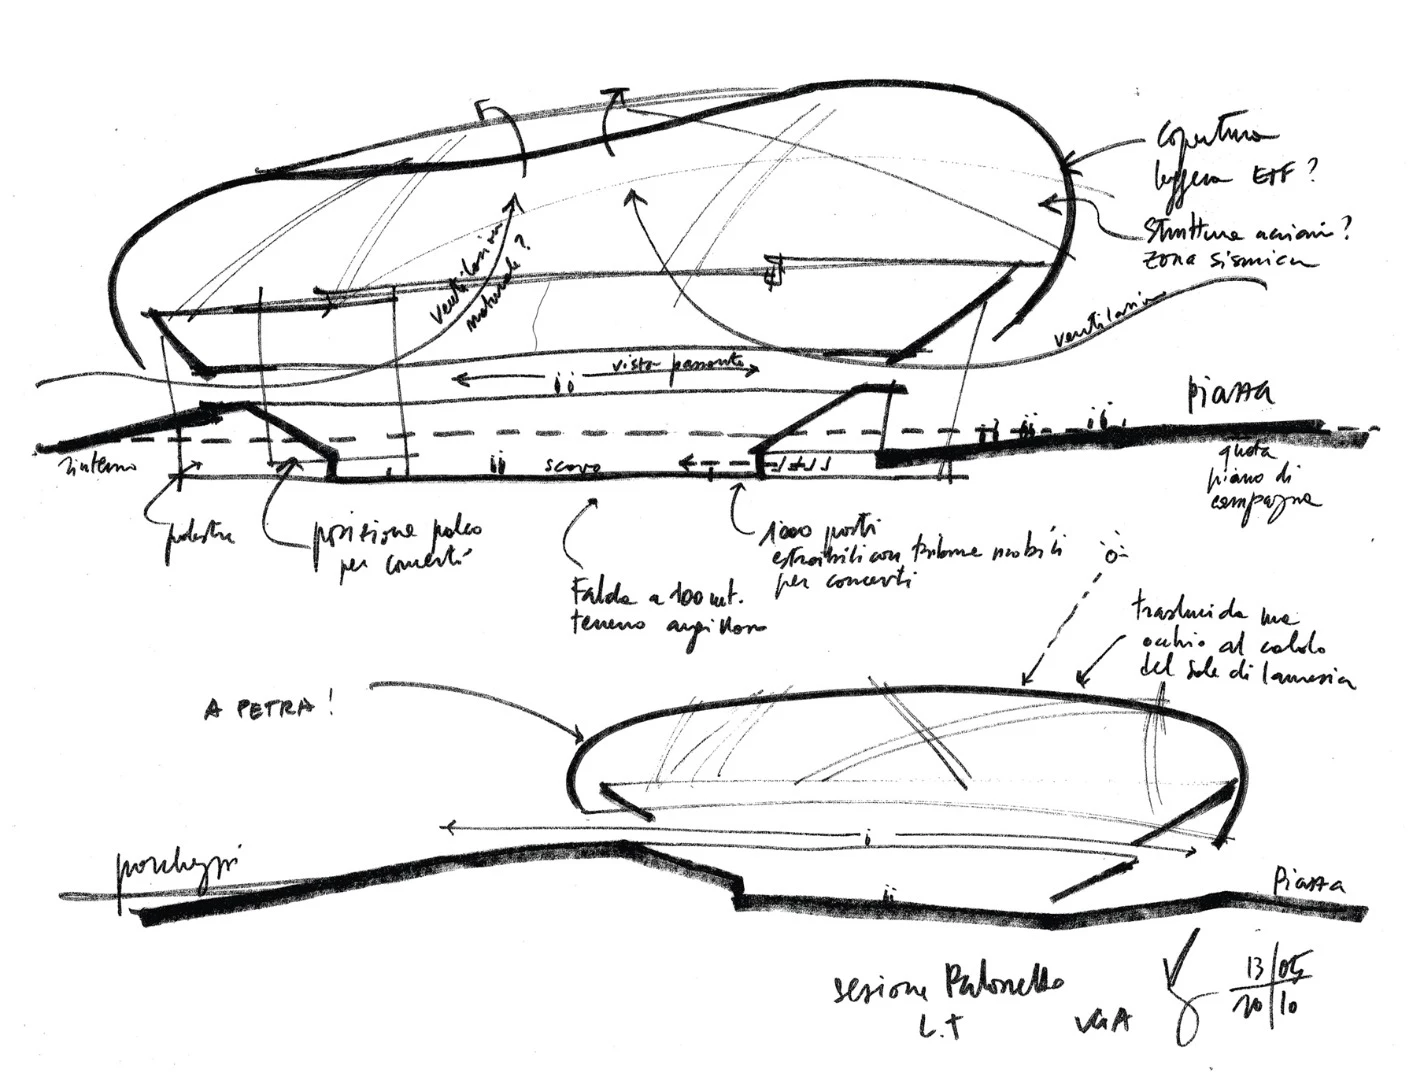 copertura
leggera ETF?
strutture acciaio?
zona sismica
ventilazione
naturale?
ventilazione
vista passante
Piazza
rinterno
scavo
quota
piano di
campagna
palestra
posizione palco
per concerti
1000 posti
estraibili con tribune mobili
per concerti
Falda a 100 mt.
terreno argilloso
traslucida ma
occhio al caldo
del sole di lamezia
A PETRA!
parcheggi
Piazza
sezione Palazzetto
L.T
VGA
13/05
20/10